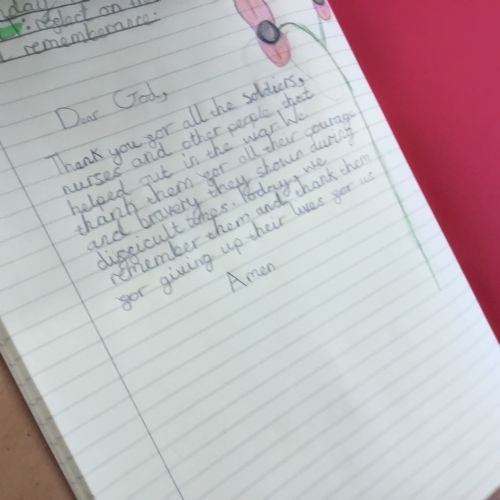 : reflect on the
remembrance.
Dear God,
Thank you for all the soldiers,
nurses and other people that
helped out in the war. We
thank them for all their courage
and bravery they shown during
difficult times. Today, we
remember them and thank them
for giving up their lives for us
Amen